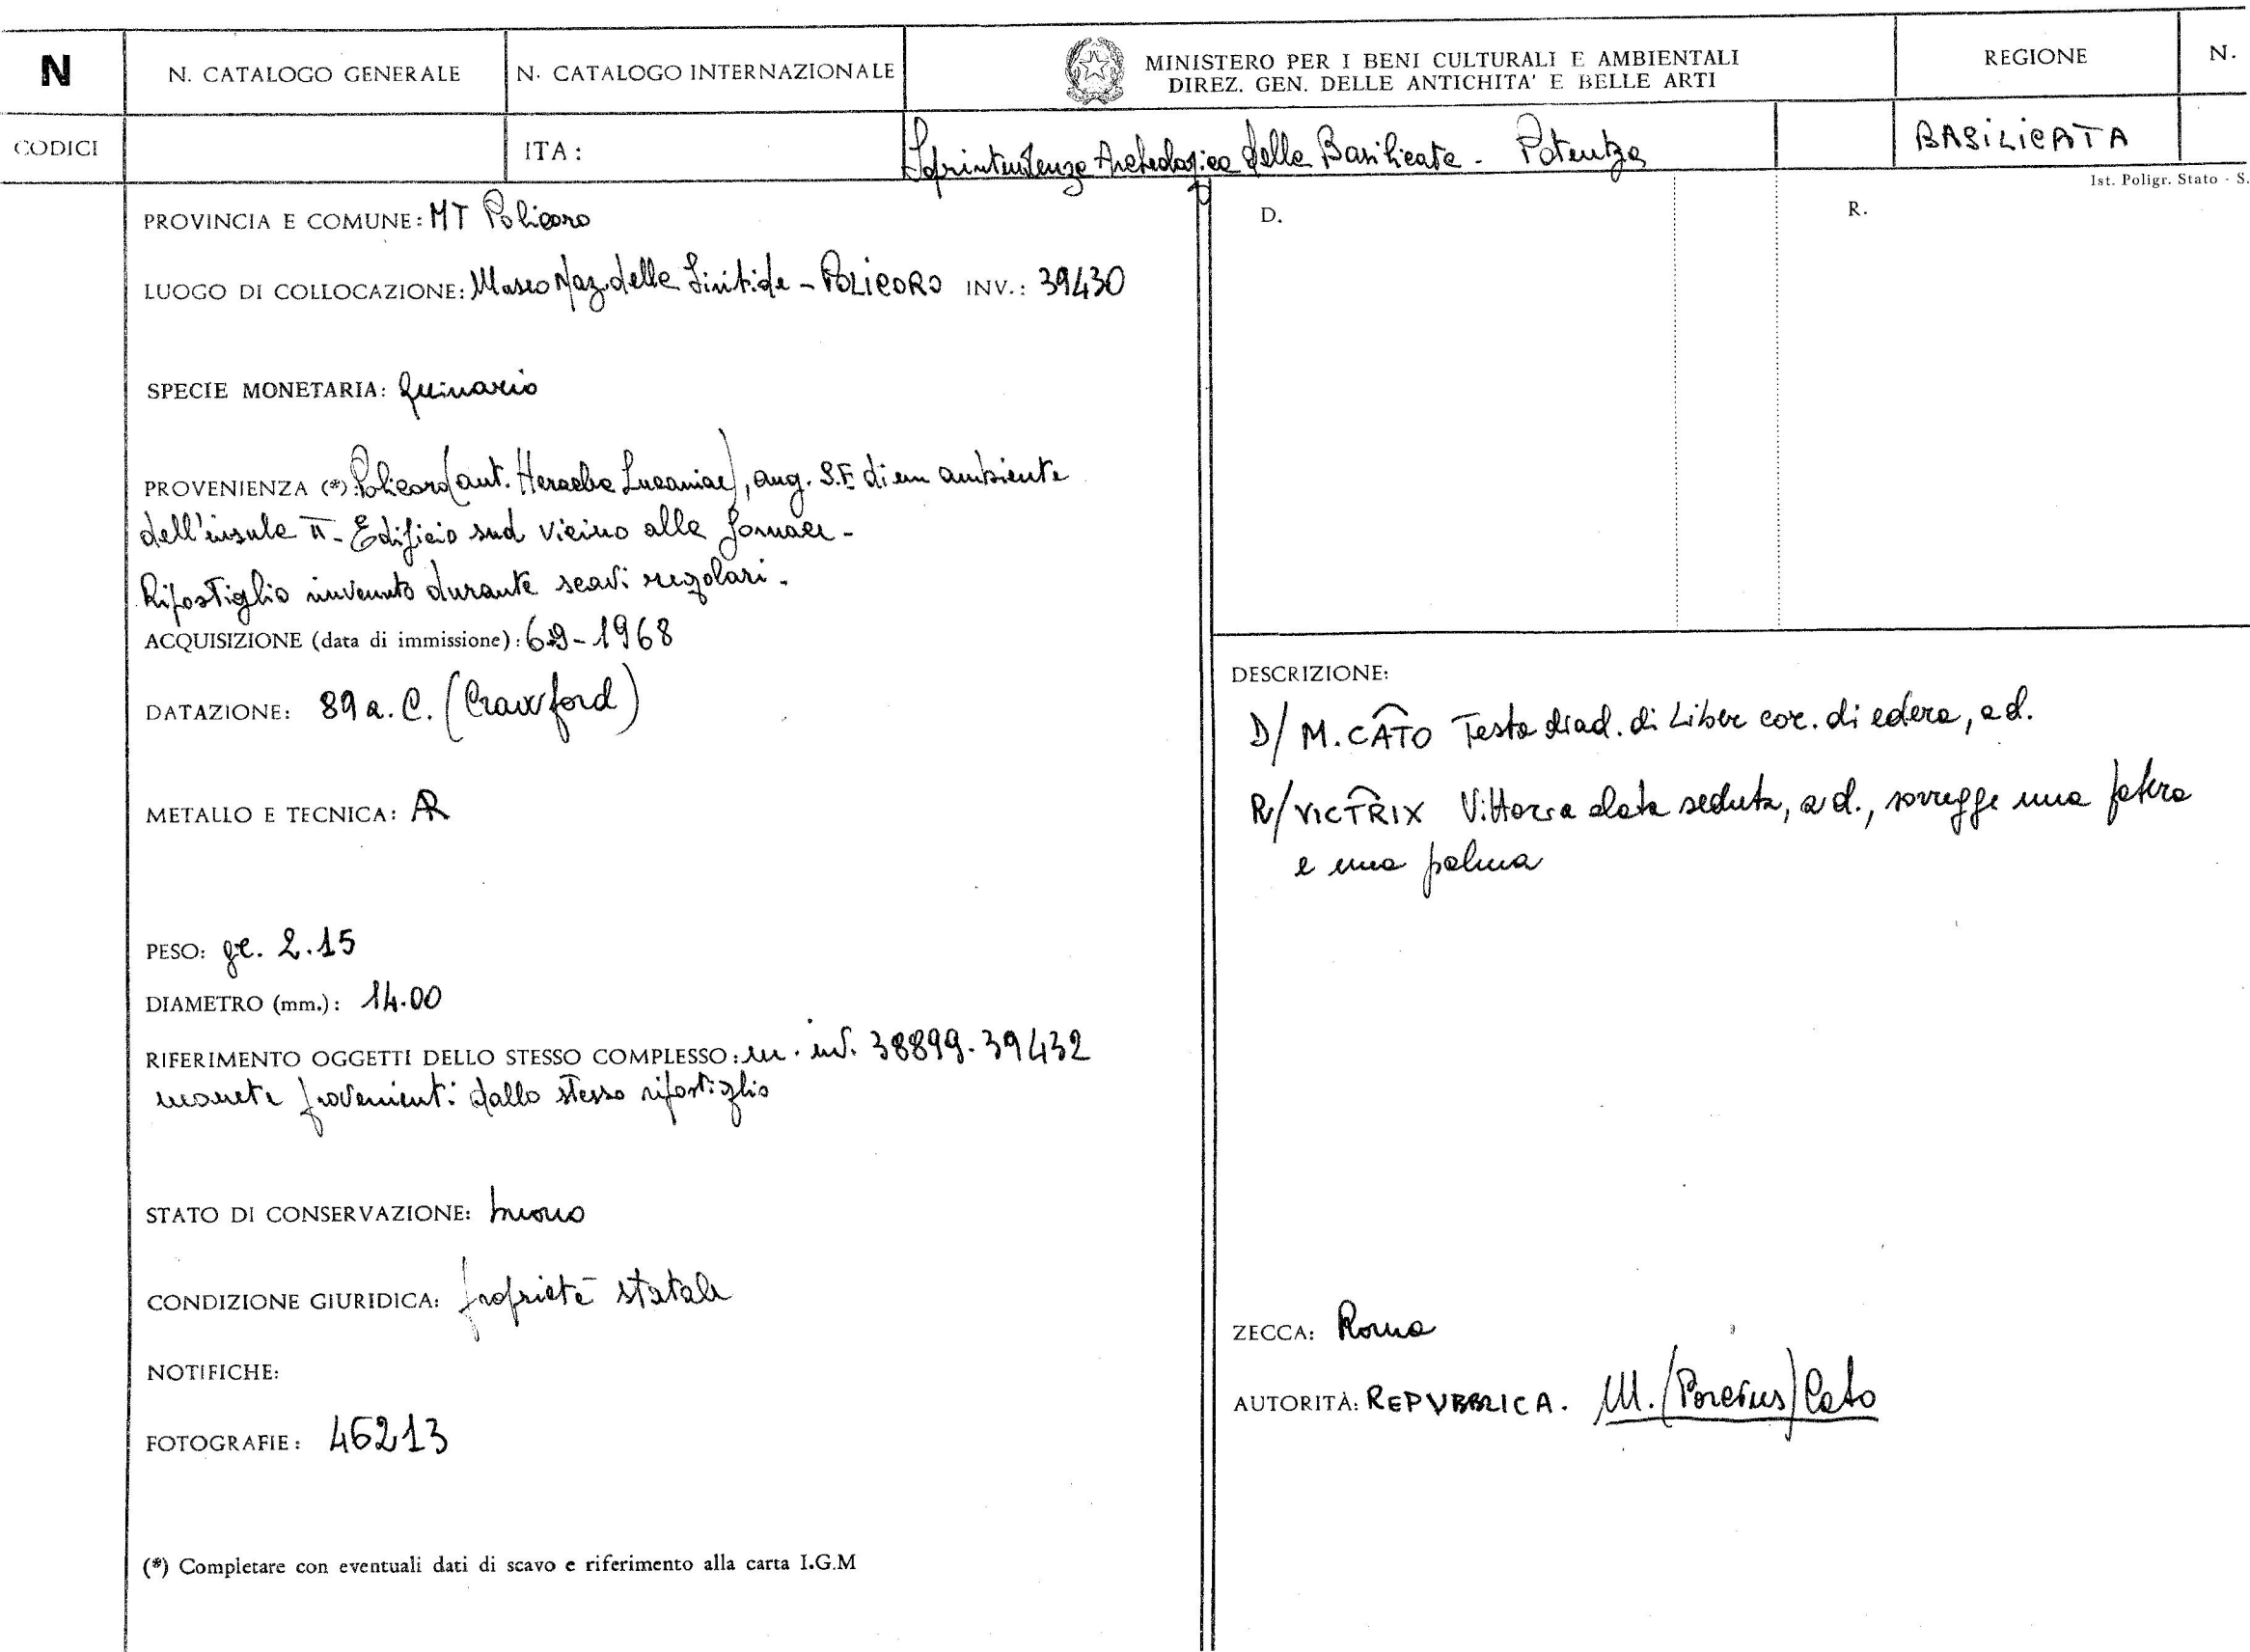 N
N. CATALOGO GENERALE
N. CATALOGO INTERNAZIONALE
MINISTERO PER I BENI CULTURALI E AMBIENTALI
DIREZ. GEN. DELLE ANTICHITA' E BELLE ARTI
REGIONE
N.
CODICI
ITA:
Soprintendenza Archeologica della Basilicata - Potenza
BASILICATA
Ist. Poligr. Stato - S.
PROVINCIA E COMUNE: MT Policoro
LUOGO DI COLLOCAZIONE: Museo Naz. della Siritide - POLICORO INV.: 39430
SPECIE MONETARIA: Quinario
PROVENIENZA (*): Policoro (ant. Heraclea Lucaniae), ang. S.E di un ambiente
dell'insula II - Edificio sud vicino alla fornace -
Ripostiglio rinvenuto durante scavi regolari -
ACQUISIZIONE (data di immissione): -1968
DATAZIONE: 89 a. C. (Crawford)
METALLO E TECNICA: AR
PESO: gr. 2.15
DIAMETRO (mm.): 14.00
RIFERIMENTO OGGETTI DELLO STESSO COMPLESSO: nn. inv. 38899-39432
monete provenienti dallo stesso ripostiglio
STATO DI CONSERVAZIONE: buono
CONDIZIONE GIURIDICA: proprietà statale
NOTIFICHE:
FOTOGRAFIE: 46213
(*) Completare con eventuali dati di scavo e riferimento alla carta I.G.M
D.
R.
DESCRIZIONE:
D/ M. CATO Testa diad. di Liber cor. di edera, a d.
R/ VICTRIX Vittoria alata seduta, a d., sorregge una patera
e una palma
ZECCA: Roma
AUTORITÀ: REPVBBLICA. M. (Porcius) Cato